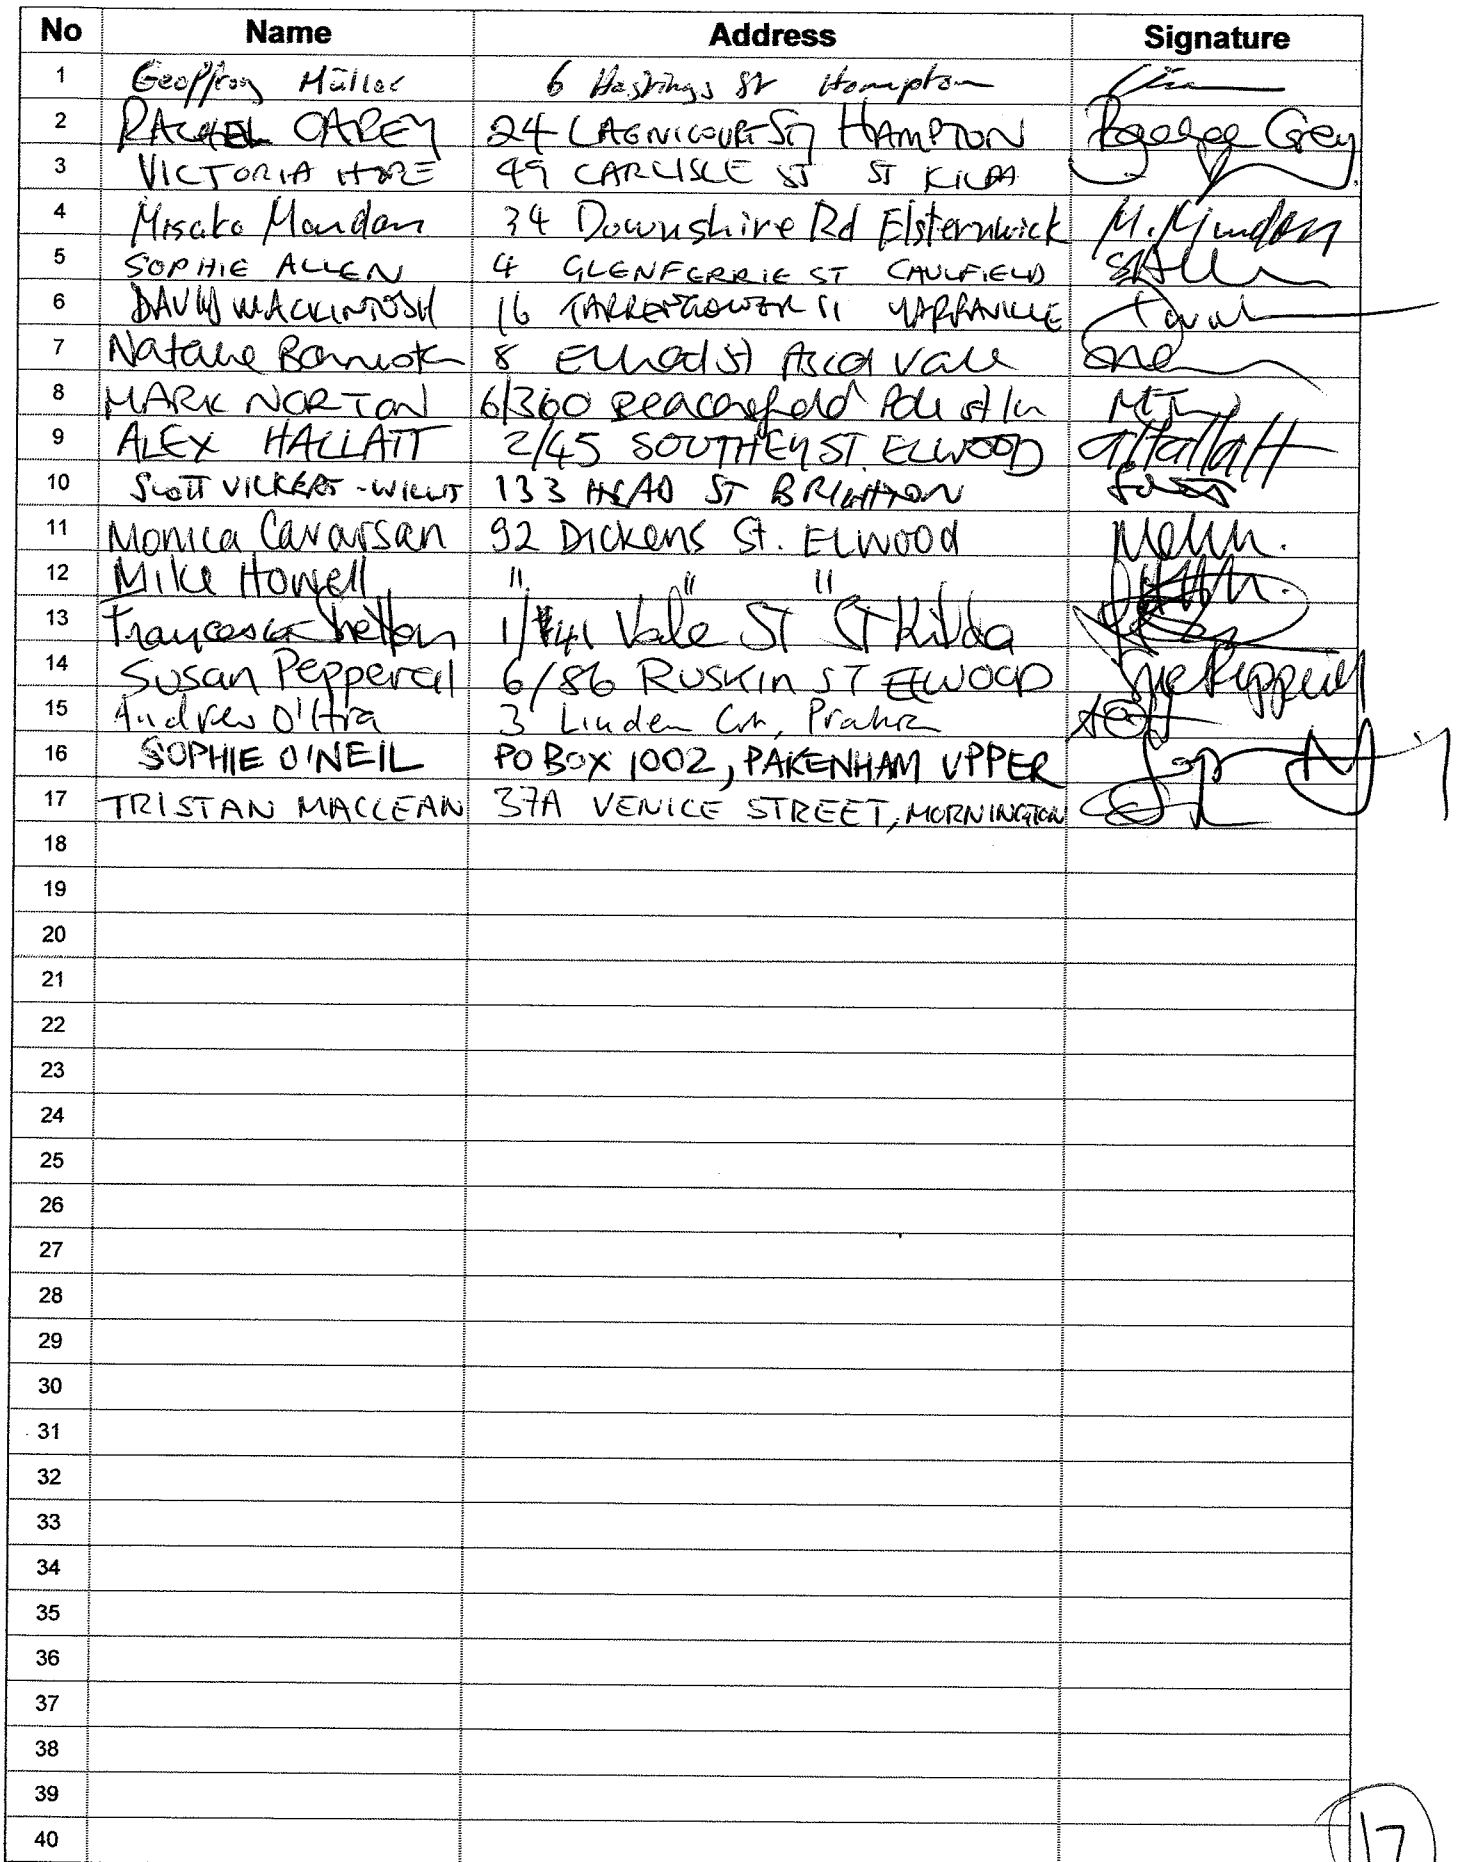 No Name Address Signature
1 Geoffrey Müller 6 Hastings St Hampton
2 RACHEL CAREY 24 LAGNICOURT ST HAMPTON
3 VICTORIA HORE 49 CARLISLE ST ST KILDA
4 Misato Mandan 34 Downshire Rd Elsternwick M. Mandan
5 SOPHIE ALLEN 4 GLENFERRIE ST CAULFIELD
6 DAVID MACKINTOSH 16 TARRENGOWER ST YARRAVILLE
7 Natalie 8 St Ascot Vale
8 MARK NORTON 6/360 Beaconsfield Pde St K
9 ALEX HALLATT 2/45 SOUTHEY ST. ELWOOD aHallatt
10 SCOTT VICKERS-WILLIS 133 HEAD ST BRIGHTON
11 Monica Cavarsan 92 Dickens St. ELWOOD
12 Mike Howell " " "
13 Francesca 1/41 Vale ST ST Kilda
14 Susan Pepperell 6/86 RUSKIN ST ELWOOD Sue Pepperell
15 Andrew O'Hra 3 Linden Crt, Prahra
16 SOPHIE O'NEIL PO BOX 1002, PAKENHAM UPPER
17 TRISTAN MACLEAN 37A VENICE STREET, MORNINGTON
18
19
20
21
22
23
24
25
26
27
28
29
30
31
32
33
34
35
36
37
38
39
40
17